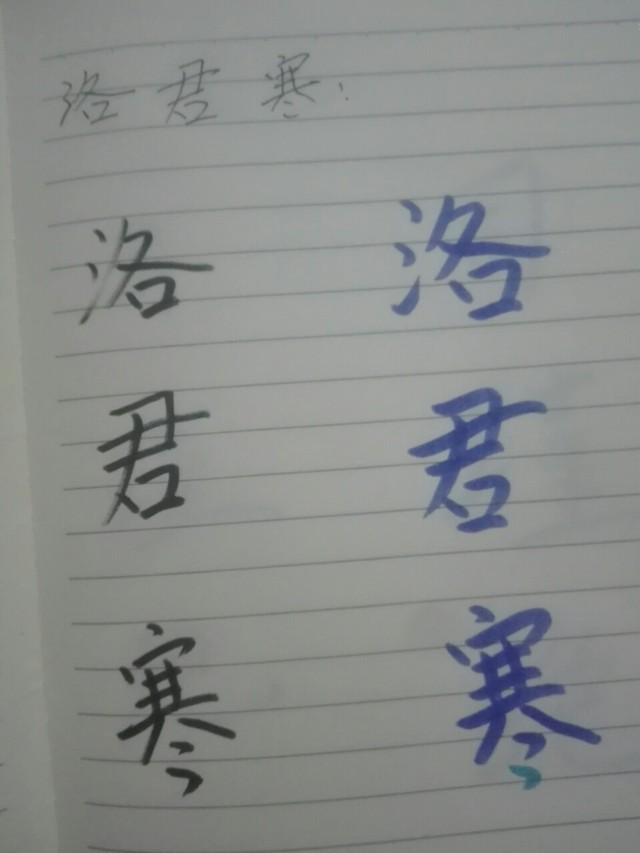 洛君寒:
洛 洛
君 君
寒 寒